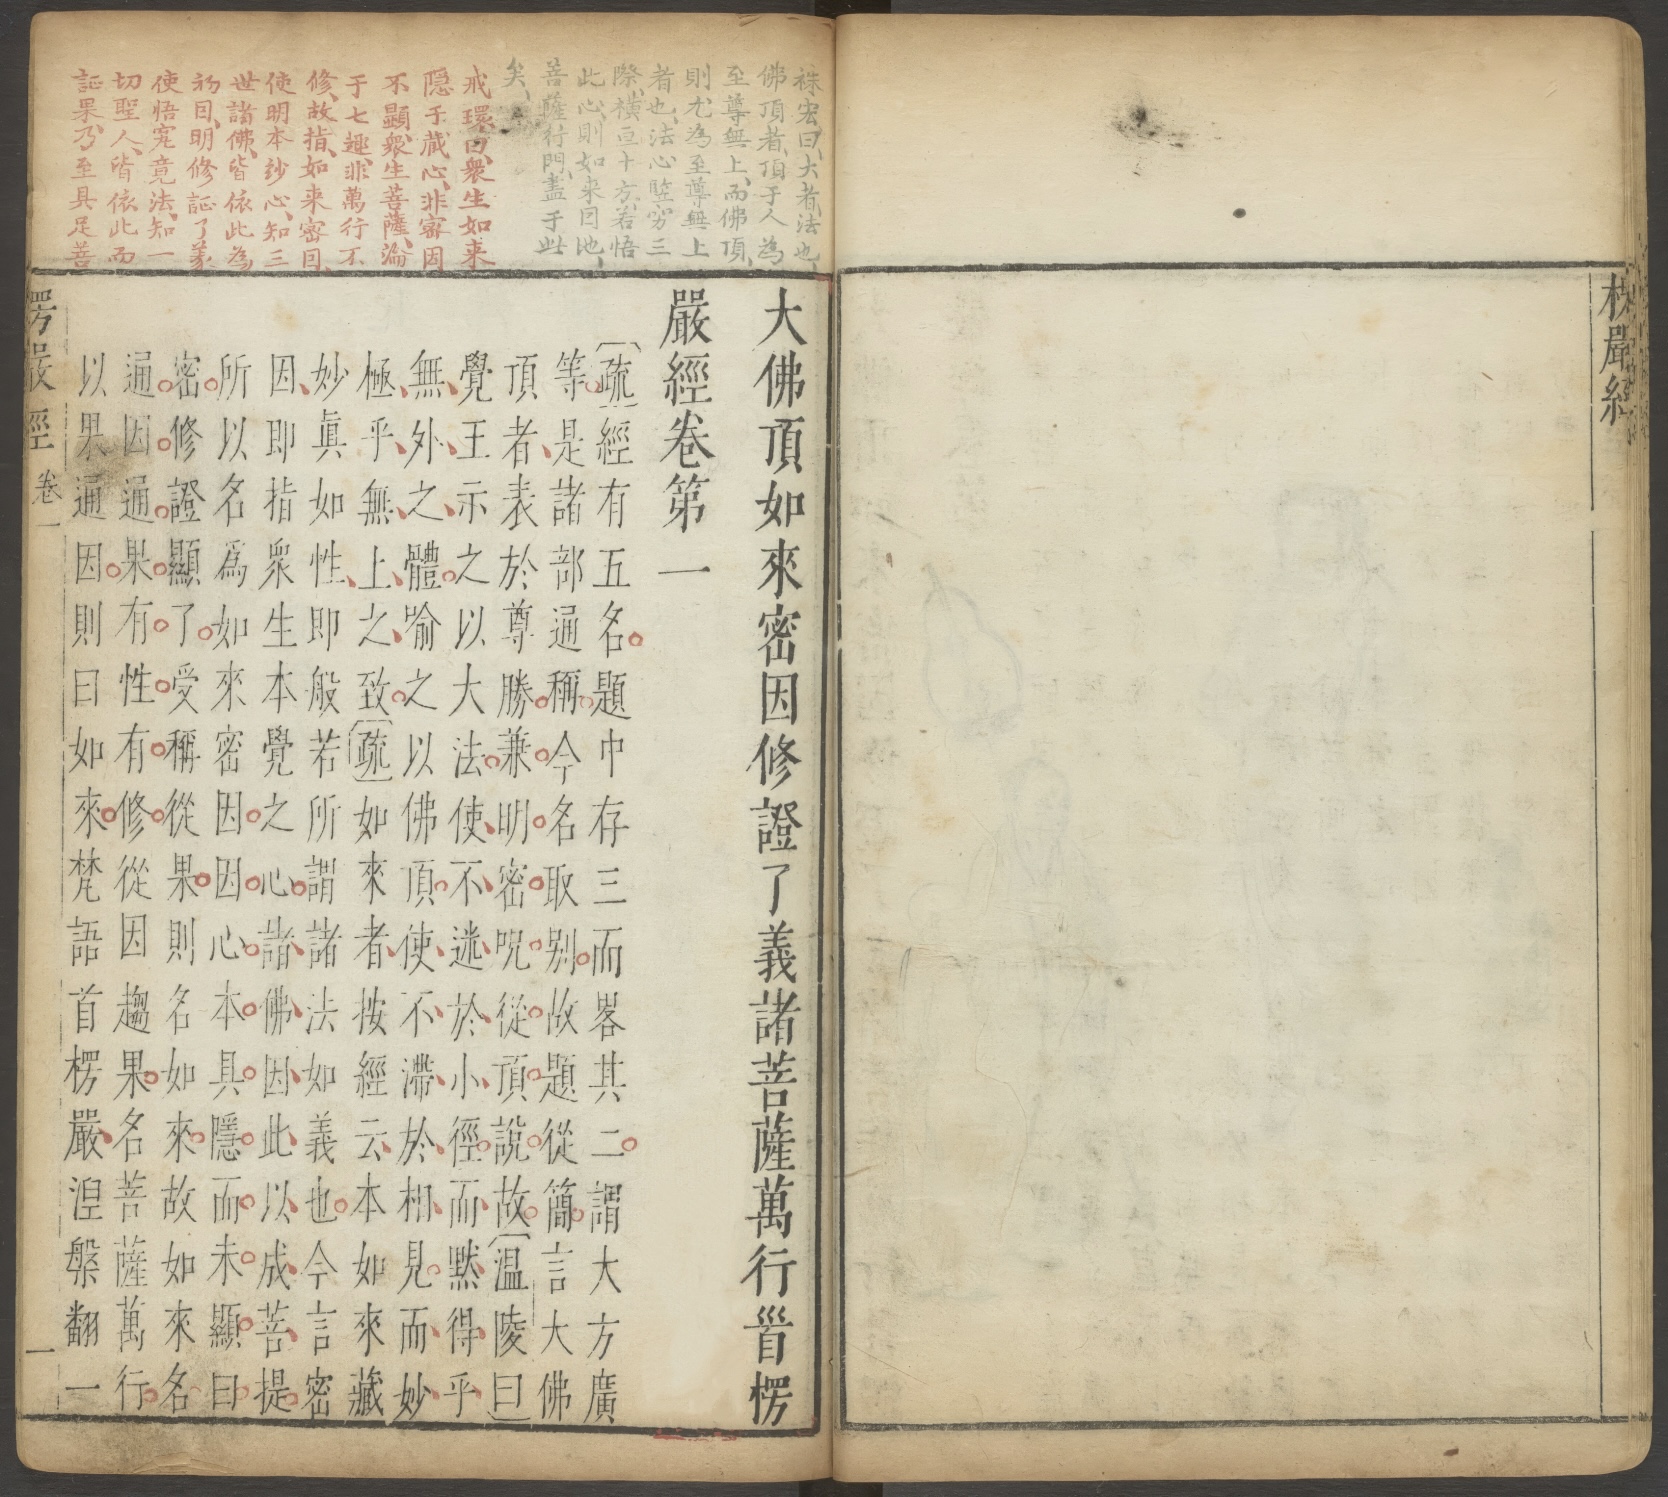 楞嚴經
袾宏曰、大者、法也、
佛頂者、頂于人為
至尊無上、而佛頂、
則尤為至尊無上
者也、法心竪窮三
際、橫亘十方、若悟
此心、則如来因地、
菩薩行門、盡于此
矣、
戒環曰、衆生如来
隱于蔵心、非密因
不顯、衆生菩薩、淪
于七趣、非萬行不
修、故指、如来密因、
使明本玅心、知三
世諸佛、皆依此為
初因、明修証了義
使悟究竟法、知一
切聖人、皆依此而
証果、乃至具足菩
大佛頂如來密因修證了義諸菩薩萬行首楞
嚴經卷第一
〔疏〕經有五名。題中存三而畧其二。謂大方廣
等。是諸部通稱。今名取别。故題從簡。言大佛
頂者、表於尊勝。兼明密呪。從頂說故。〔温陵曰〕
覺王示之以大法。使、不迷、於小徑。而、黙得乎
無、外、之、體。喻之以佛頂。使、不滯、於、相、見。而、妙、
極、乎、無、上、之、致。〔疏〕如來者、按經云、本如來藏
妙眞如性、即般若所謂諸法如義也。今言密
因、即指衆生本覺之心。諸、佛、因、此、以、成、菩、提。
所以名爲如來密因。因。心。本。具。隱。而。未。顯。曰。
密。修證顯了。受稱從果。則名如來。故如來名
通。因。通。果。有。性。有。修。從因趨果。名菩薩萬行。
以果通因。則曰如來。梵語首楞嚴、涅槃翻一
楞嚴經 卷一 一